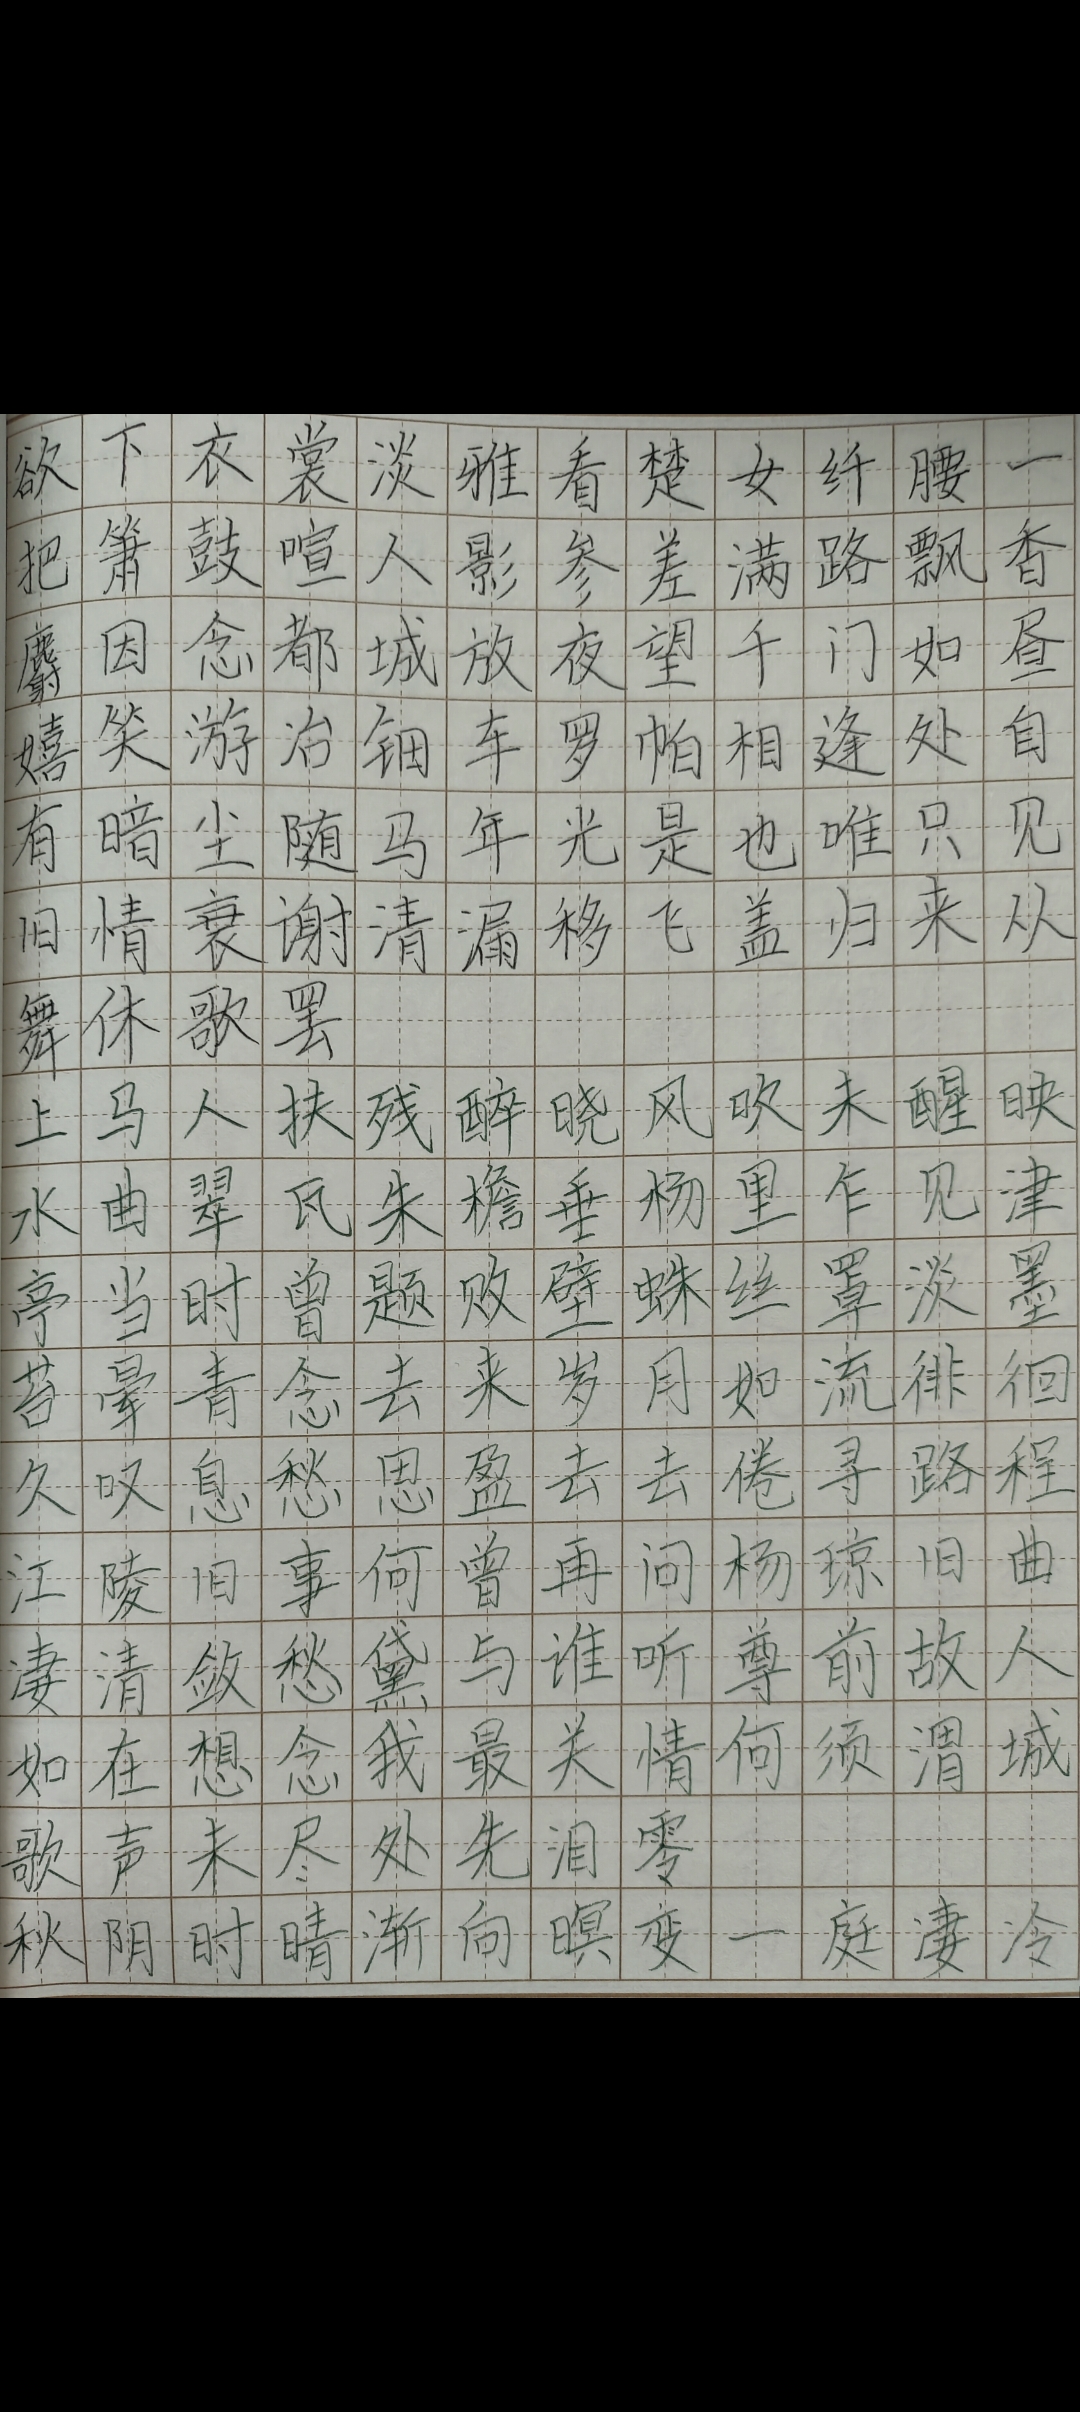 欲下衣裳淡雅看楚女纤腰一
把箫鼓喧人影参差满路飘香
麝因念都城放夜望千门如昼
嬉笑游冶钿车罗帕相逢处自
有暗尘随马年光是也唯只见
旧情衰谢清漏移飞盖归来从
舞休歌罢
上马人扶残醉晓风吹未醒映
水曲翠瓦朱檐垂杨里乍见津
亭当时曾题败壁蛛丝罩淡墨
苔晕青念去来岁月如流徘徊
久叹息愁思盈去去倦寻路程
江陵旧事何曾再问杨琼旧曲
凄清敛愁黛与谁听尊前故人
如在想念我最关情何须渭城
歌声未尽处先泪零
秋阴时晴渐向暝变一庭凄冷